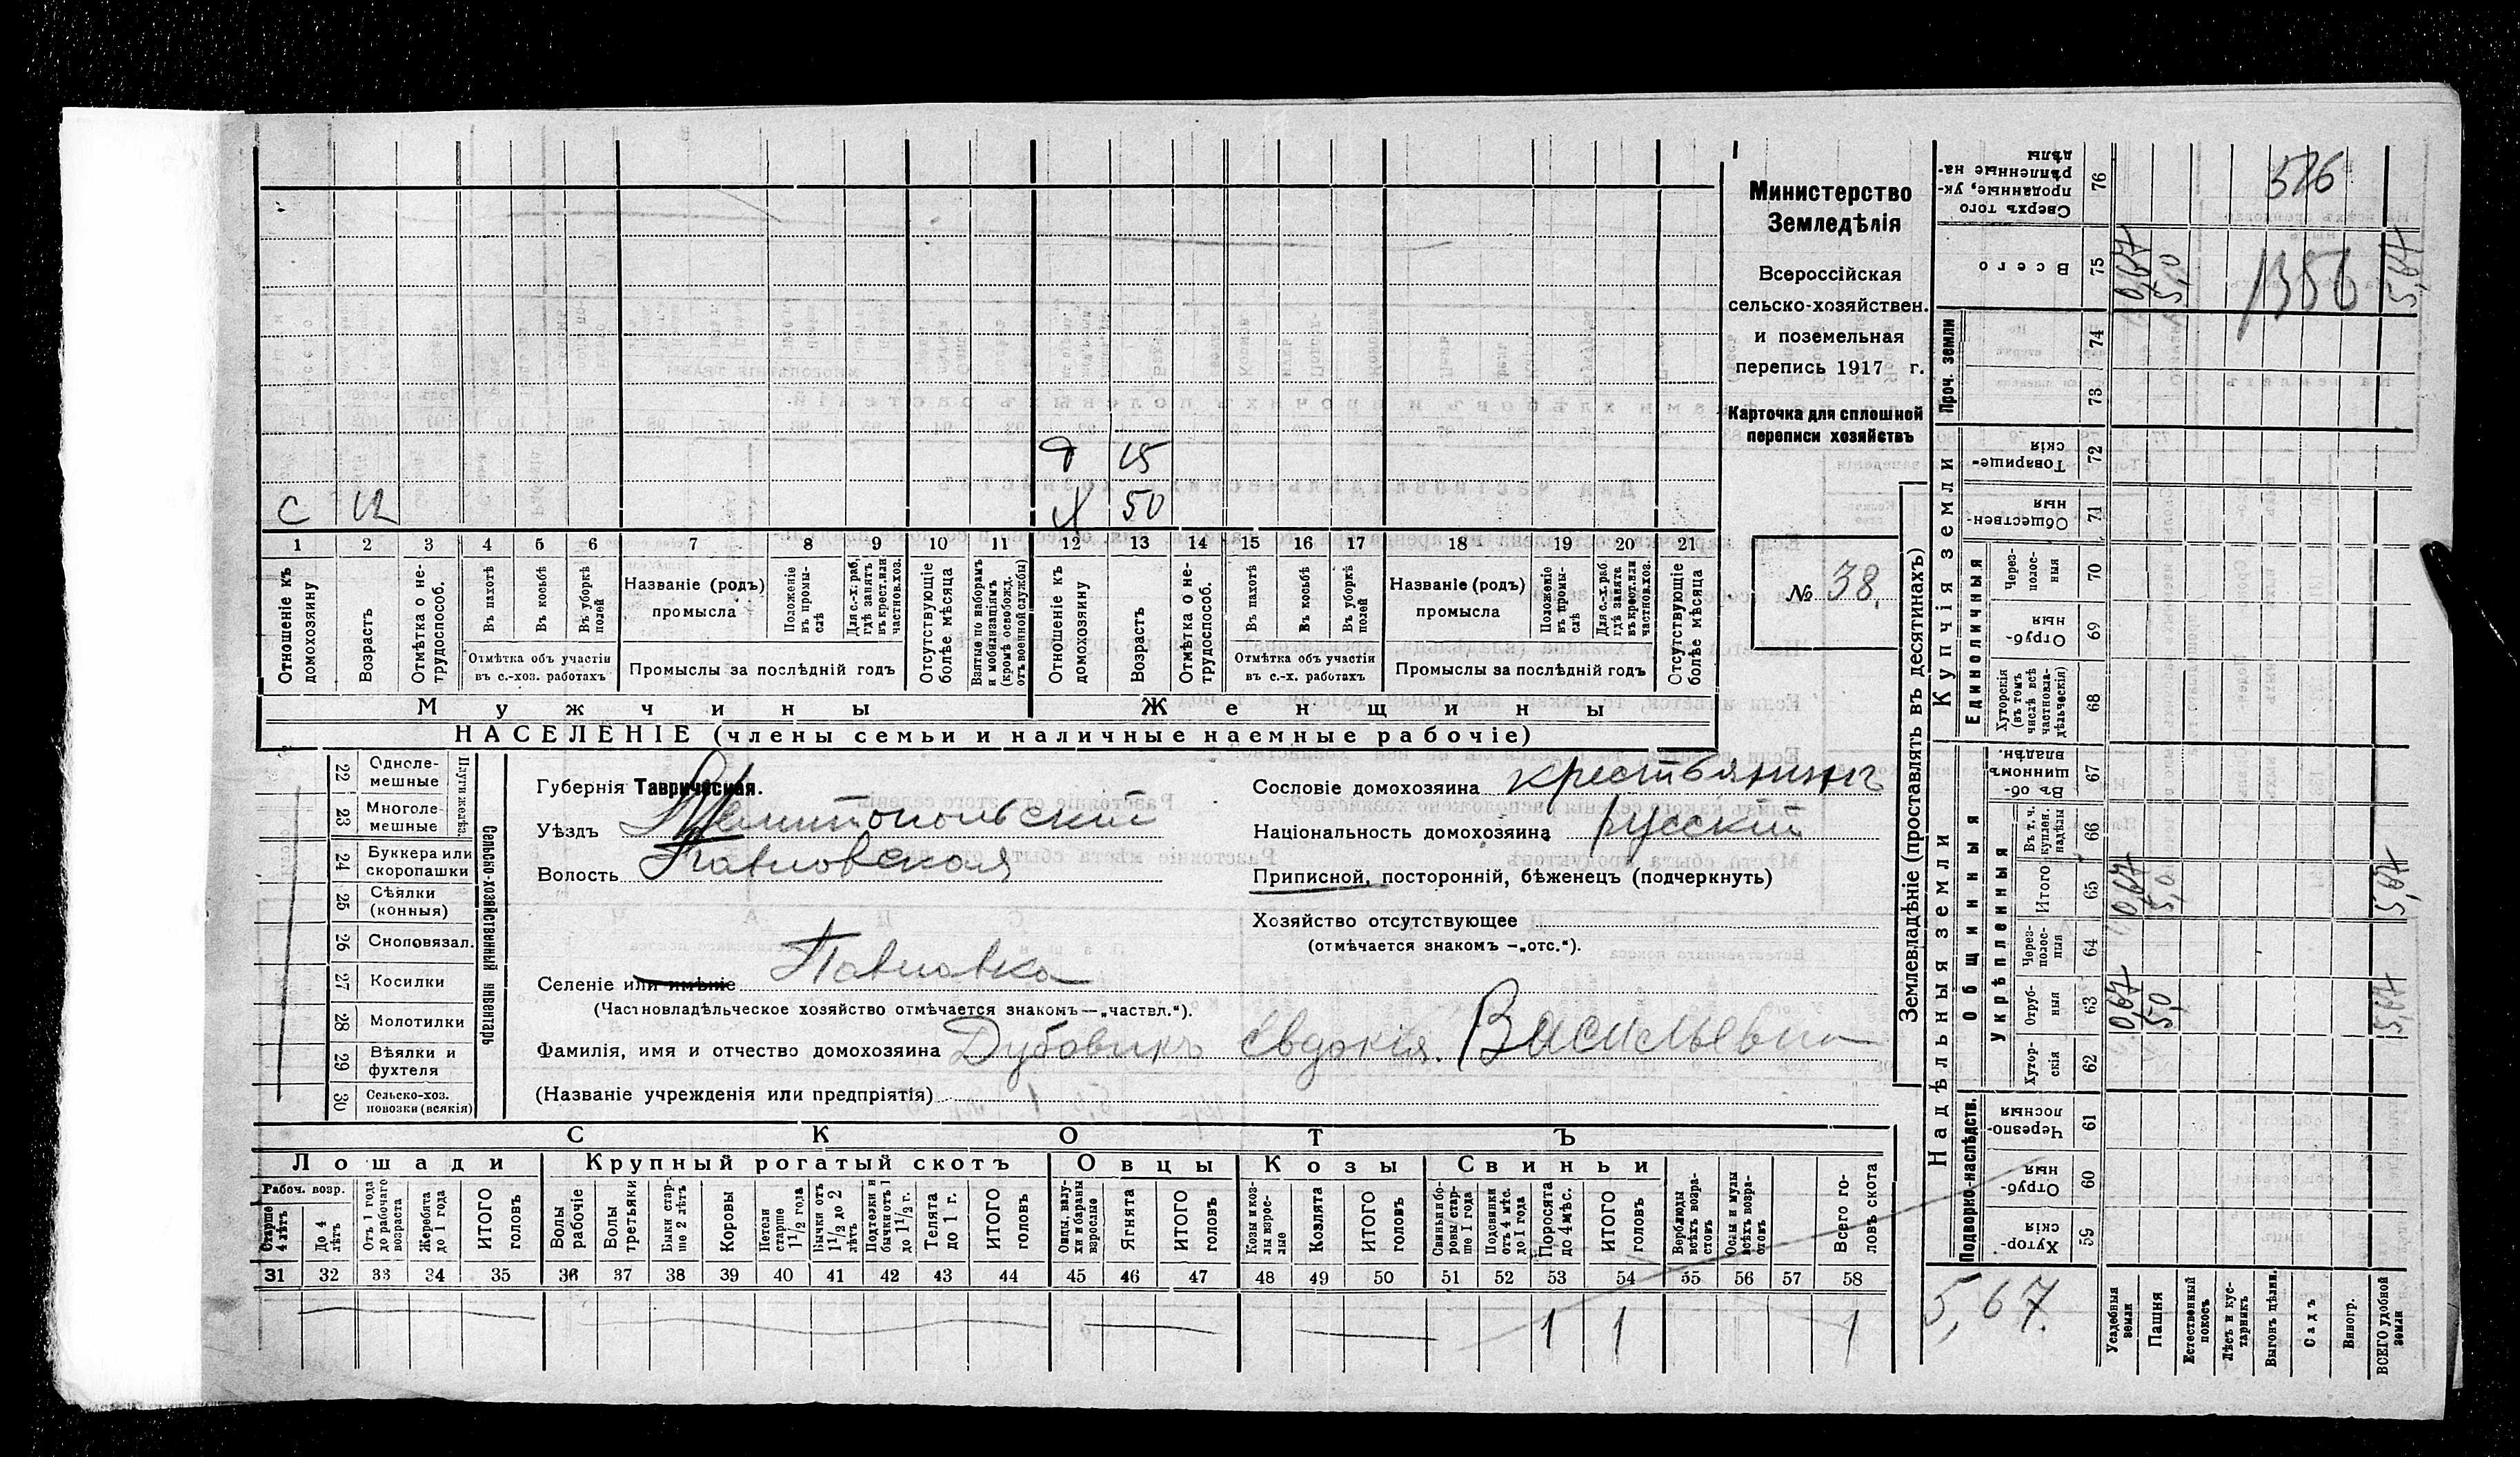 Министерство
Земледѣлія
Всероссійская
сельско-хозяйствен.
и поземельная
перепись 1917 г.
Карточка для сплошной
переписи хозяйствъ
№ 38.
д 15
с 12 х 50
1 2 3 4 5 6 7 8 9 10 11 12 13 14 15 16 17 18 19 20 21
Отношеніе къ домохозяину
Возрастъ
Отмѣтка о не-трудоспособ.
Въ пахотѣ
Въ косьбѣ
Въ уборкѣ полей
Отмѣтка объ участіи
въ с.-хоз. работахъ
Названіе (родъ)
промысла
Положеніе въ промы-слѣ
Для с.-х. раб. гдѣ занятъ въ крест. или частнов. хоз.
Промыслы за послѣдній годъ
Отсутствующіе болѣе мѣсяца
Взятые по наборамъ и мобилизаціямъ (кромѣ освобожд. отъ военной службы)
Отношеніе къ домохозяину
Возрастъ
Отмѣтка о не-трудоспособ.
Въ пахотѣ
Въ косьбѣ
Въ уборкѣ полей
Отмѣтка объ участіи
въ с.-х. работахъ
Названіе (родъ)
промысла
Положеніе въ промы-слѣ
Для с.-х. раб. гдѣ занята въ крест. или частнов. хоз.
Промыслы за послѣдній годъ
Отсутствующіе болѣе мѣсяца
Мужчины Женщины
НАСЕЛЕНІЕ (члены семьи и наличные наемные рабочіе)
22 Одноле-мешные
23 Многоле-мешные
Плуги желѣз.
24 Буккера или скоропашки
25 Сѣялки (конныя)
26 Сноповязал.
27 Косилки
28 Молотилки
29 Вѣялки и фухтеля
30 Сельско-хоз. повозки (всякія)
Сельско-хозяйственный инвентарь
Губернія Таврическая.
Уѣздъ Мелитопольскій
Волость Павловская
Селеніе или имѣніе Павловка
(Частновладѣльческое хозяйство отмѣчается знакомъ—„частвл.“).
Фамилія, имя и отчество домохозяина Дубовикъ Евдокія. Васильевна
(Названіе учрежденія или предпріятія)
Сословіе домохозяина крестьянинъ
Національность домохозяина русскій
Приписной, посторонній, бѣженецъ (подчеркнуть)
Хозяйство отсутствующее
(отмѣчается знакомъ —„отс.“).
СКОТЪ
Лошади Крупный рогатый скотъ Овцы Козы Свиньи
Рабоч. возр.
Старше 4 лѣтъ
До 4 лѣтъ
Отъ 1 года до рабочаго возраста
Жеребята до 1 года
ИТОГО головъ
Волы рабочіе
Волы третьяки
Быки стар-ше 2 лѣтъ
Коровы
Нетели старше 1½ года
Бычки отъ 1½ до 2 лѣтъ
Подтелки и бычки отъ 1 до 1½ г.
Телята до 1 г.
ИТОГО головъ
Овцы, валу-хи и бараны взрослые
Ягнята
ИТОГО головъ
Козы и коз-лы взрос-лые
Козлята
ИТОГО головъ
Свиньи и бо-ровы стар-ше 1 года
Подсвинки отъ 4 мѣс. до 1 года
Поросята до 4 мѣс.
ИТОГО головъ
Верблюды всѣхъ возра-стовъ
Ослы и мулы всѣхъ возра-стовъ
Всего го-ловъ скота
31 32 33 34 35 36 37 38 39 40 41 42 43 44 45 46 47 48 49 50 51 52 53 54 55 56 57 58
1 1 1
Землевладѣніе (проставлять въ десятинахъ)
Надѣльныя земли Купчія земли Проч. земли
Подворно-наслѣдств.
Общинныя
Укрѣпленныя
Единоличныя
Хутор-скія 59
Отруб-ныя 60
Черезпо-лосныя 61
Хутор-скія 62
Отруб-ныя 63 0,67 5,0 5,67
Через-полос-ныя 64
Итого 65 0,67 5,0 5,67
Въ т. ч. куплен. надѣлы 66
Въ об-щинномъ владѣн. 67
Хуторскія (въ томъ числѣ всѣ частновла-дѣльческія) 68
Отруб-ныя 69
Через-полос-ныя 70
Обществен-ныя 71
Товарище-скія 72
73
74
Всего 75 0,67 5,0 1356 5,67
Сверхъ того проданные, ук-рѣпленные на-дѣлы 76 516
5,67.
Усадебныя земли
Пашня
Естественный покосъ
Лѣсъ и кус-тарникъ
Выгонъ цѣлин.
Садъ
Виногр.
ВСЕГО удобной земли